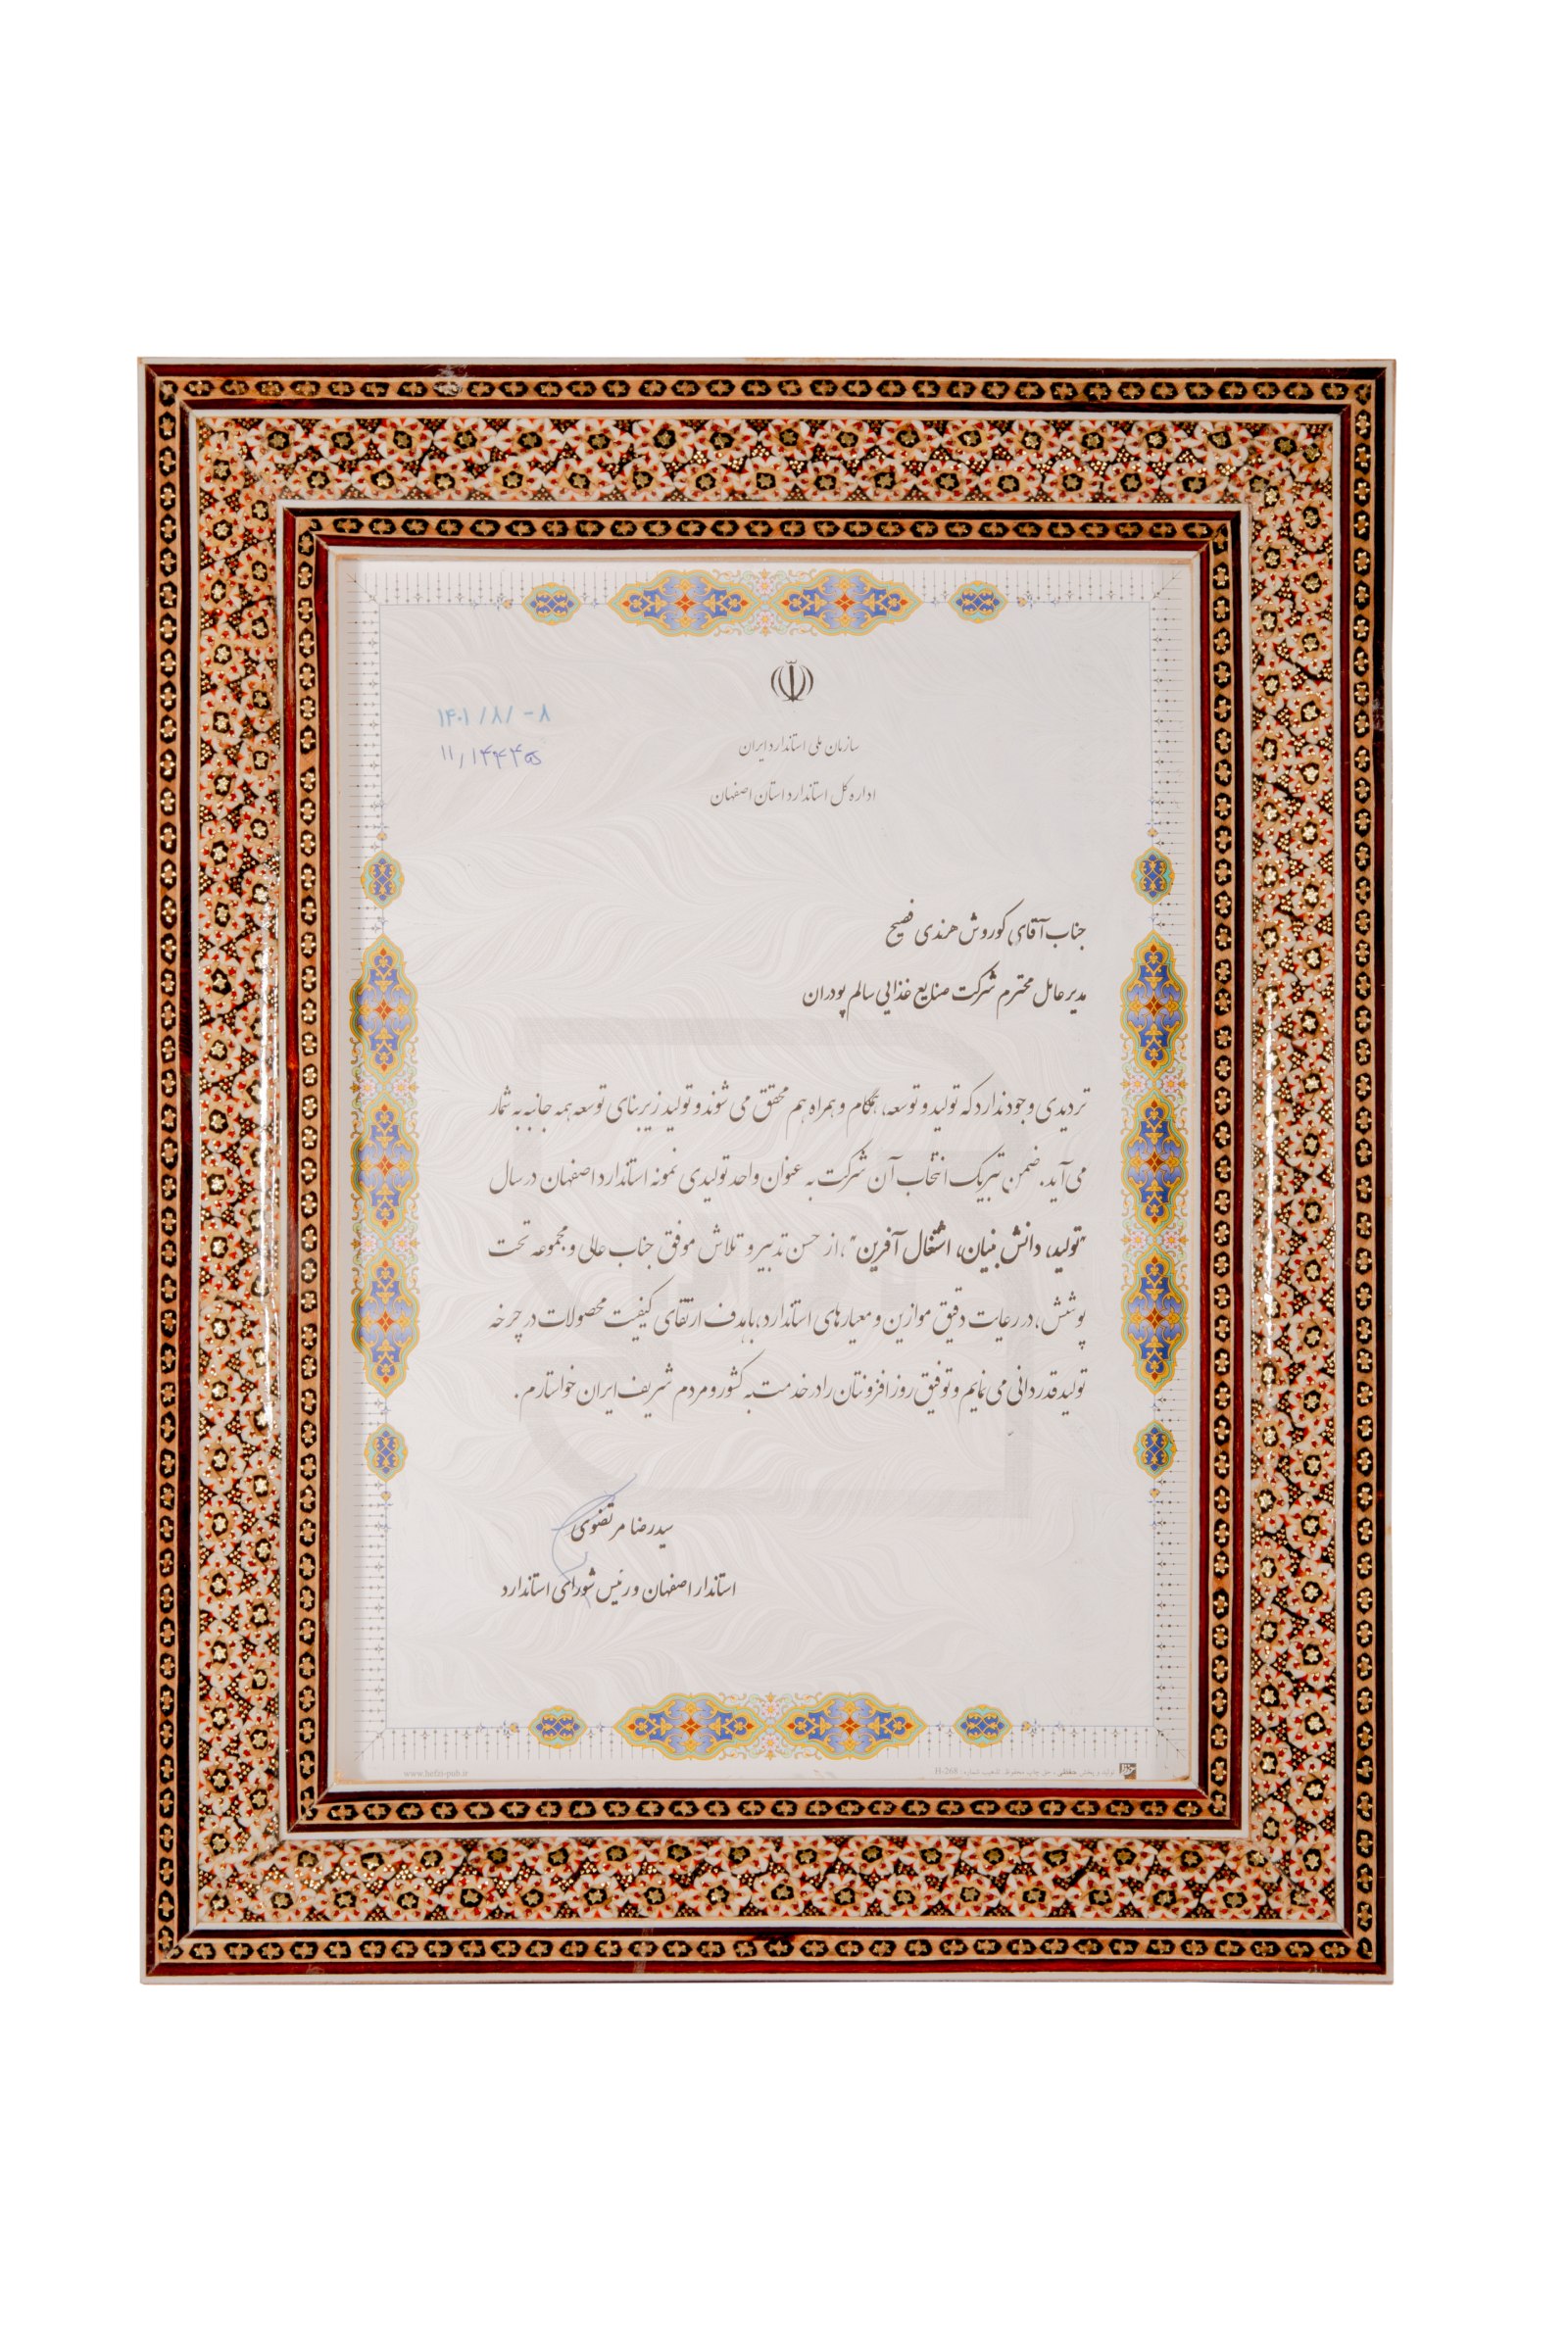 ۱۴۰۱/۸/-۸
سازمان ملی استاندارد ایران
اداره کل استاندارد استان اصفهان
جناب آقای کوروش هرندی فصیح
مدیرعامل محترم شرکت صنایع غذایی سالم پودران
تردیدی وجود ندارد که تولید و توسعه، همگام و همراه هم محقق می شوند و تولید زیربنای توسعه همه جانبه به شمار
می آید. ضمن تبریک انتخاب آن شرکت به عنوان واحد تولیدی نمونه استاندارد اصفهان در سال
"تولید، دانش بنیان، اشتغال آفرین"، از حسن تدبیر و تلاش موفق جناب عالی و مجموعه تحت
پوشش، در رعایت دقیق موازین و معیارهای استاندارد، با هدف ارتقای کیفیت محصولات در چرخه
تولید قدردانی می نمایم و توفیق روزافزونتان را در خدمت به کشور و مردم شریف ایران خواستارم.
سیدرضا مرتضوی
استاندار اصفهان و رئیس شورای استاندارد
www.hefzi-pub.ir
تولید و پخش حفظی، حق چاپ محفوظ. تذهیب شماره: H-268